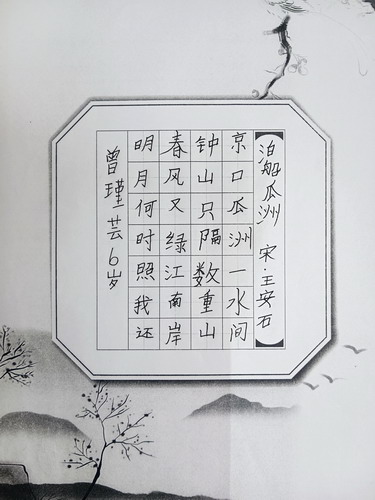 泊船瓜洲 宋·王安石
京口瓜洲一水间
钟山只隔数重山
春风又绿江南岸
明月何时照我还
曾瑾芸6岁